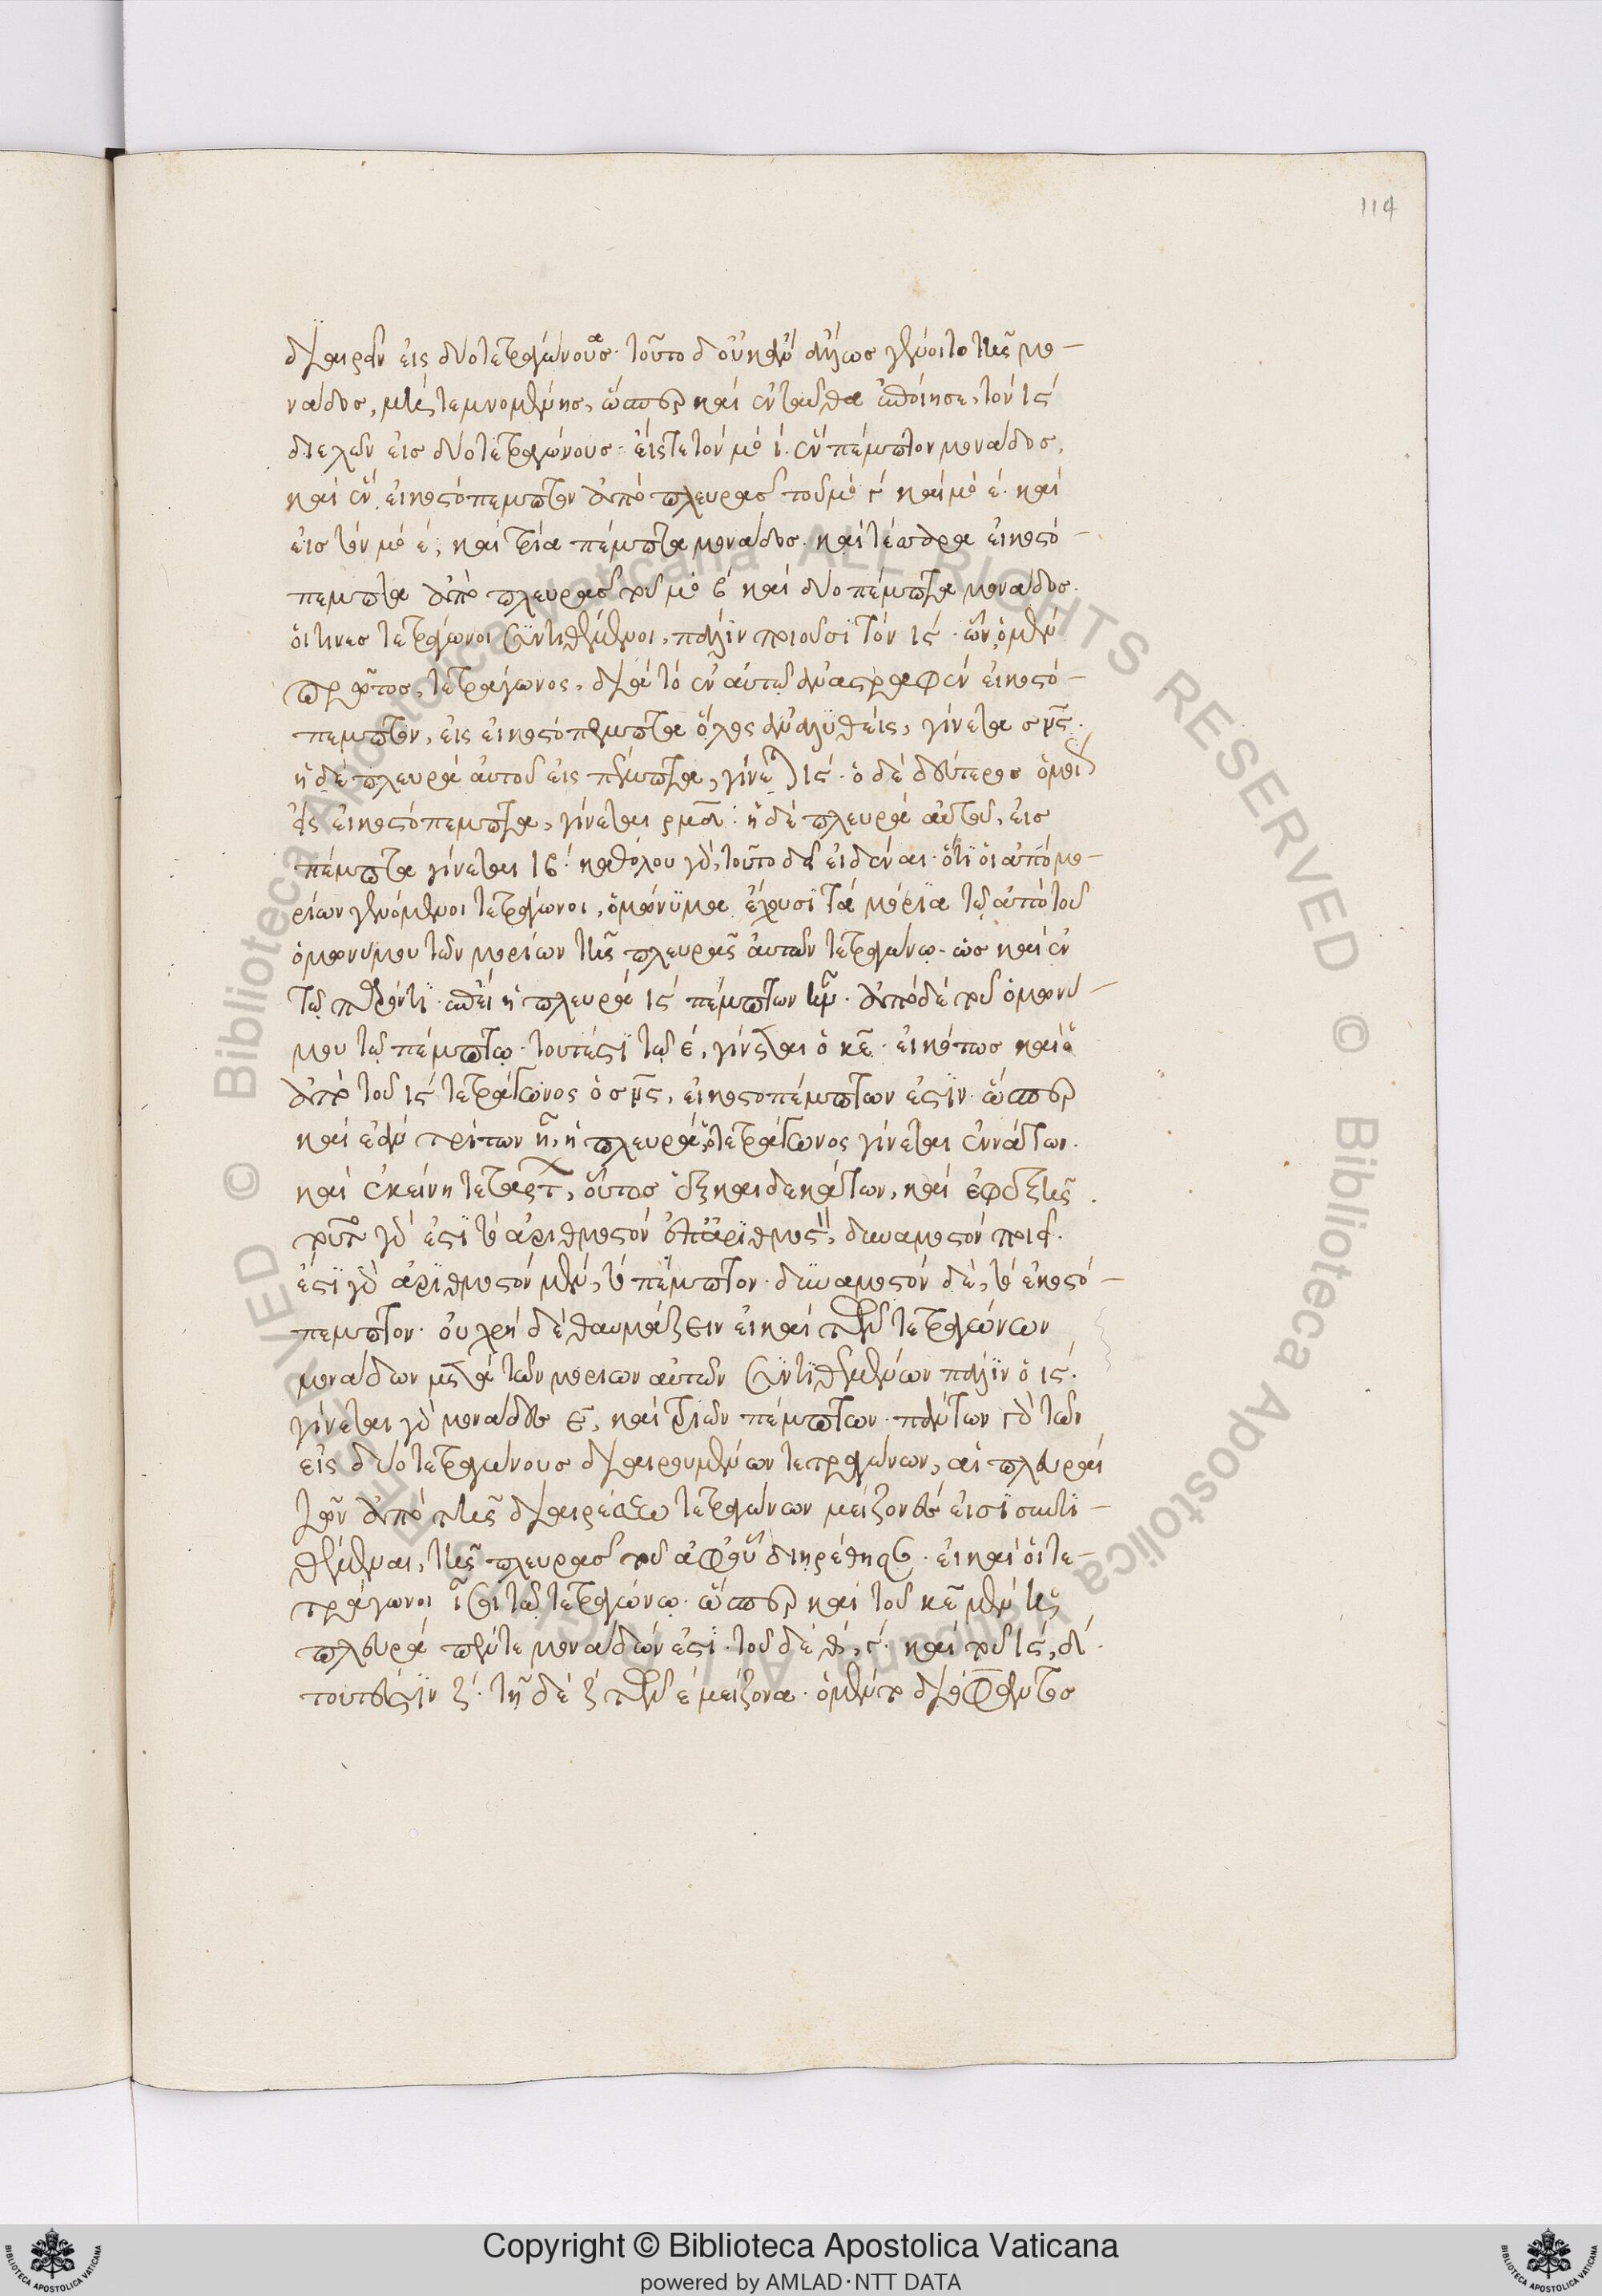 114
διαιρεῖν εἰς δύο τετραγώνους. τοῦτο δ οὐκ ἂν ἄλλως γένοιτο τῆς μο-
νάδος, μὴ τεμνομένης, ὥσπερ καὶ ἐνταῦθα ἐποίησε, τὸν ις
διελὼν εἰς δύο τετραγώνους. εἴς τε τὸν μο ι. ἓν πέμπτον μονάδος,
καὶ ἓν εἰκοστόπεμπτον ἀπὸ πλευρᾶς τοῦ μο γ καὶ μο ε. καὶ
εἰς τὸν μο ε, καὶ τρία πέμπτα μονάδος. καὶ τέσσαρα εἰκοστό-
πεμπτα ἀπὸ πλευρᾶς τοῦ μο β καὶ δύο πέμπτα μονάδος.
οἵτινες τετράγωνοι συντιθέμενοι, πάλιν ποιοῦσι τὸν ις. ὧν ὁ μὲν
πρῶτος, τετράγωνος, διὰ τὸ ἐν αὐτῷ ἀναστραφὲν εἰκοστό-
πεμπτον, εἰς εἰκοστόπεμπτα ὅλος ἀναλυθεὶς, γίνεται σνς.
ἡ δὲ πλευρὰ αὐτοῦ εἰς πέμπτα, γίνεται ις. ὁ δὲ δεύτερος ὁμοίως
εἰς εἰκοστόπεμπτα, γίνεται ρμδ. ἡ δὲ πλευρὰ αὐτοῦ, εἰς
πέμπτα γίνεται ιβ. καθόλου γὰρ, τοῦτο δεῖ εἰδέναι. ὅτι οἱ ἀπὸ μο-
ρίων γενόμενοι τετράγωνοι, ὁμώνυμα ἔχουσι τὰ μόρια τῷ ἀπὸ τοῦ
ὁμωνύμου τῶν μορίων τῆς πλευρᾶς αὐτῶν τετραγώνῳ. ὡς καὶ ἐν
τῷ παρόντι. ἐπεὶ ἡ πλευρὰ ις πέμπτων ἦν. ἀπὸ δὲ τοῦ ὁμωνύ-
μου τῷ πέμπτῳ. τουτέστι τῷ ε, γίνεται ὁ κε. εἰκότως καὶ ὁ
ἀπὸ τοῦ ις τετράγωνος ὁ σνς, εἰκοστοπέμπτων ἐστίν. ὥσπερ
καὶ ἐὰν τρίτων ᾖ, ἡ πλευρὰ, ὁ τετράγωνος γίνεται ἐννάτων.
καὶ ἐκείνη τετάρτων, οὗτος ἑξκαιδεκάτων, καὶ ἐφεξῆς.
τοῦτο γάρ ἐστι τὸ ἀριθμοστὸν ἐπ ἀριθμοστὸν, δυναμοστὸν ποιεῖ.
ἐστὶ γὰρ ἀριθμοστὸν μὲν, τὸ πέμπτον. δυναμοστὸν δὲ, τὸ εἰκοστό-
πεμπτον. οὐ χρὴ δὲ θαυμάζειν εἰ καὶ τῶν τετραγώνων
μονάδων μετὰ τῶν μορίων αὐτῶν συντιθεμένων πάλιν ὁ ις.
γίνεται γὰρ μονάδες ε, καὶ τριῶν πέμπτων. πάντων γὰρ τῶν
εἰς δύο τετραγώνους διαιρουμένων τετραγώνων, αἱ πλευραὶ
τῶν ἀπὸ τῆς διαιρέσεως τετραγώνων μείζονές εἰσι συντι-
θέμεναι, τῆς πλευρᾶς τοῦ ἀφ οὗ διῃρέθησαν. εἰ καὶ οἱ τε-
τράγωνοι ἴσοι τῷ τετραγώνῳ. ὥσπερ καὶ τοῦ κε μὲν ἡ
πλευρὰ πέντε μονάδων ἐστὶ. τοῦ δὲ θ, γ. καὶ τοῦ ις, δ.
τουτέστιν ζ. τὰ δὲ ζ τῶν ε μείζονα. ὁ μέντοι διόφαντος